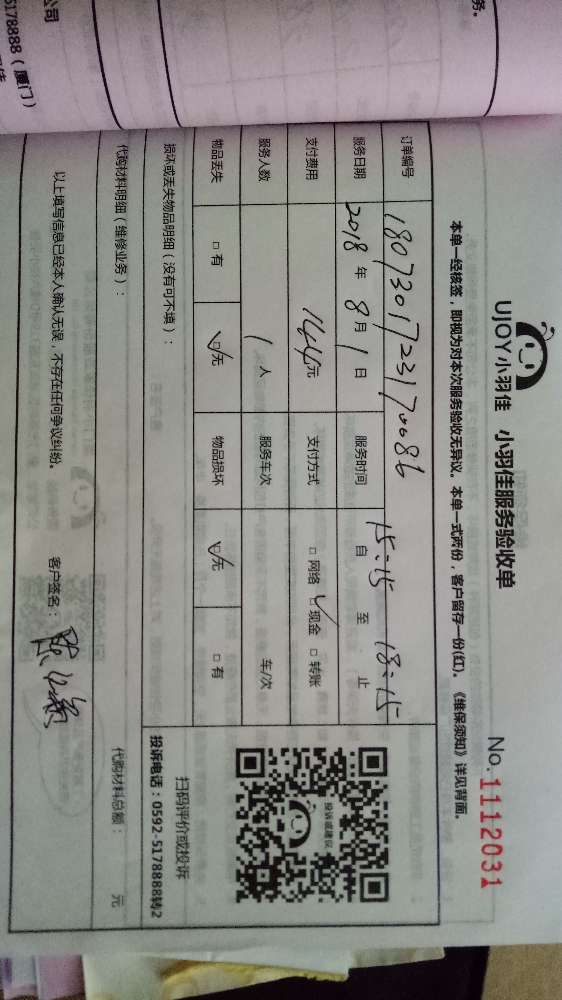 务。
公司
5178888（厦门）
UJOY小羽佳 小羽佳服务验收单
No. 1112031
本单一经核签，即视为对本次服务验收无异议。本单一式两份，客户留存一份(红)。《维保须知》详见背面。
订单编号 1807301723170086
服务日期 2018 年 8 月 1 日 服务时间 15:15 自 至 18:15 止
支付费用 144元 支付方式 □ 网络 ☑ 现金 □ 转账
服务人数 1 人 服务车次 车/次
物品丢失 □ 有 ☑ 无 物品损坏 ☑ 无 □ 有
投诉或建议
扫码评价或投诉
投诉电话：0592-5178888转2
损坏或丢失物品明细（没有可不填）：
代购材料明细（维修业务）： 代购材料总额： 元
以上填写信息已经本人确认无误，不存在任何争议纠纷。 客户签名：